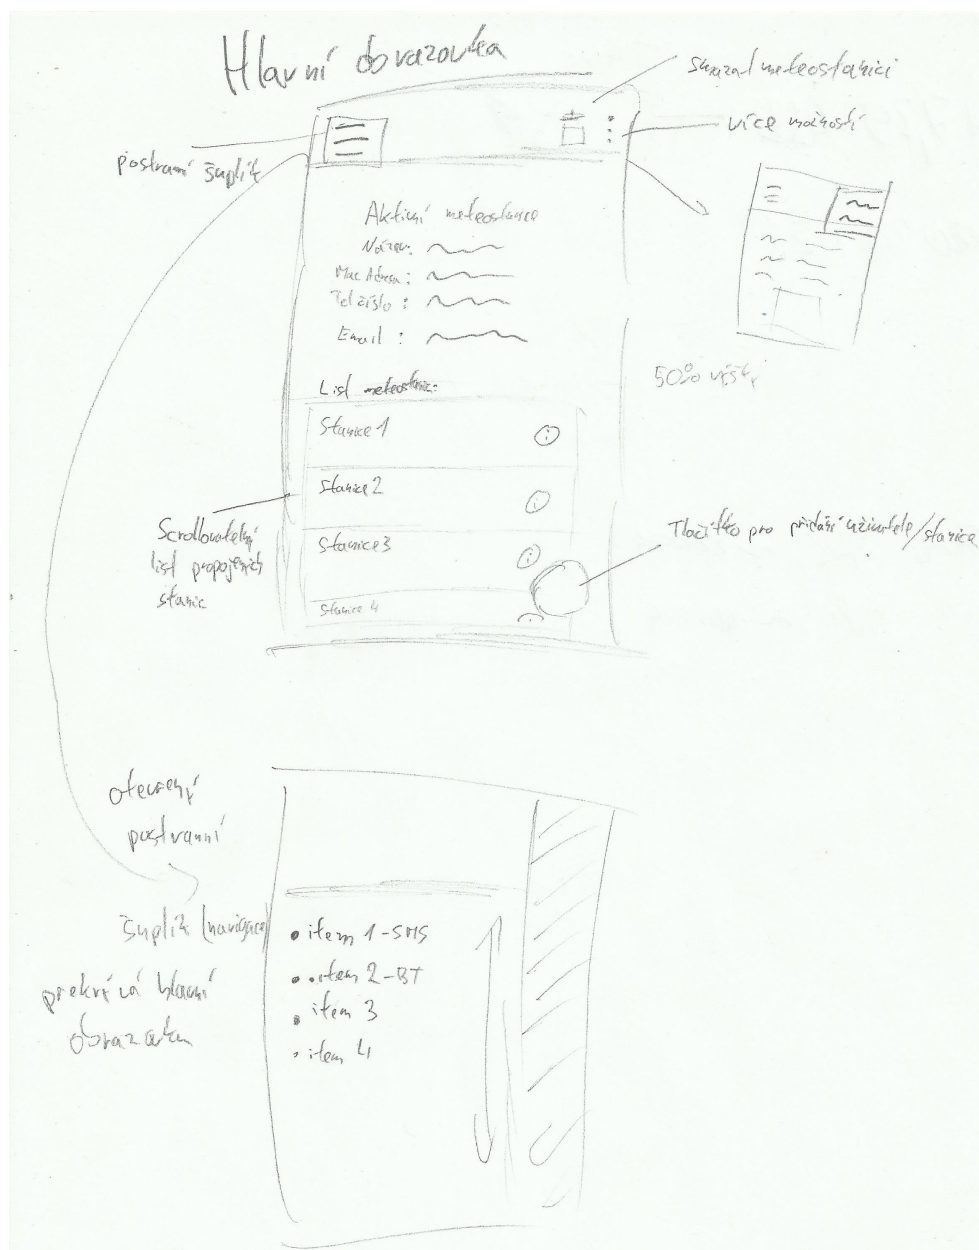 Hlavní obrazovka
smazat meteostanici
více možností
postranní šuplík
Aktivní meteostanice
Název:
Mac Adresa:
Tel číslo:
Email:
50% výšky
List meteostanic:
Stanice 1
Stanice 2
Stanice 3
Stanice 4
Scrollovatelný
list propojených
stanic
Tlačítko pro přidání uživatele/stanice
otevřený
postranní
šuplík (navigace)
prekrývá hlavní
obrazovku
item 1-SMS
item 2-BT
item 3
item 4